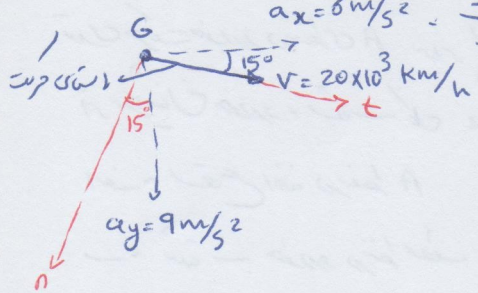 ax = 6 m/s²
G
15°
V = 20×10³ km/h
t
15°
ay = 9 m/s²
n